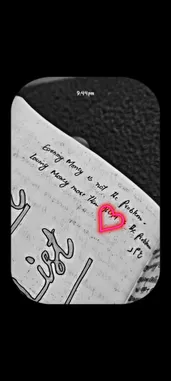 9:44pm
Earning Money is not the Problem -
Loving Money more than is the Problem
List